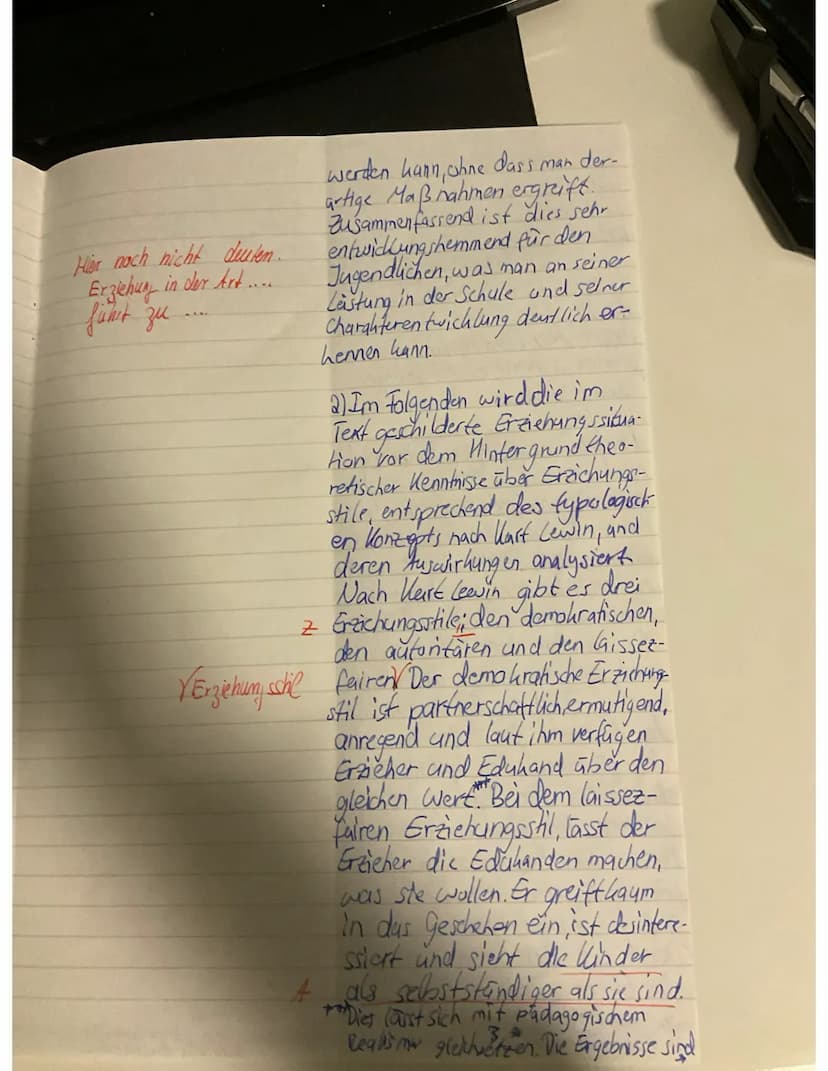 werden kann, ohne dass man der-
artige Maßnahmen ergreift.
Zusammenfassend ist dies sehr
entwicklungshemmend für den
Jugendlichen, was man an seiner
Leistung in der Schule und seiner
Charakterentwicklung deutlich er-
kennen kann.
Hier noch nicht deuten.
Erziehung in der Art ....
führt zu ....
2) Im Folgenden wird die im
Text geschilderte Erziehungssitua-
tion vor dem Hintergrund theo-
retischer Kenntnisse über Erziehungs-
stile, entsprechend des typologisch-
en Konzepts nach Kurt Lewin, und
deren Auswirkungen analysiert.
Nach Kurt Lewin gibt es drei
Z Erziehungsstile; den demokratischen,
den autoritären und den laissez-
fairen √ Der demokratische Erziehung-
√ Erziehungsstil
stil ist partnerschaftlich, ermutigend,
anregend und laut ihm verfügen
Erzieher und Edukand über den
gleichen Wert.*** Bei dem laissez-
fairen Erziehungsstil, lässt der
Erzieher die Edukanden machen,
was sie wollen. Er greift kaum
in das Geschehen ein, ist desintere-
ssiert und sieht die Kinder
A als selbstständiger als sie sind.
*** Dies lässt sich mit pädagogischem
gleichsetzen. Die Ergebnisse sind